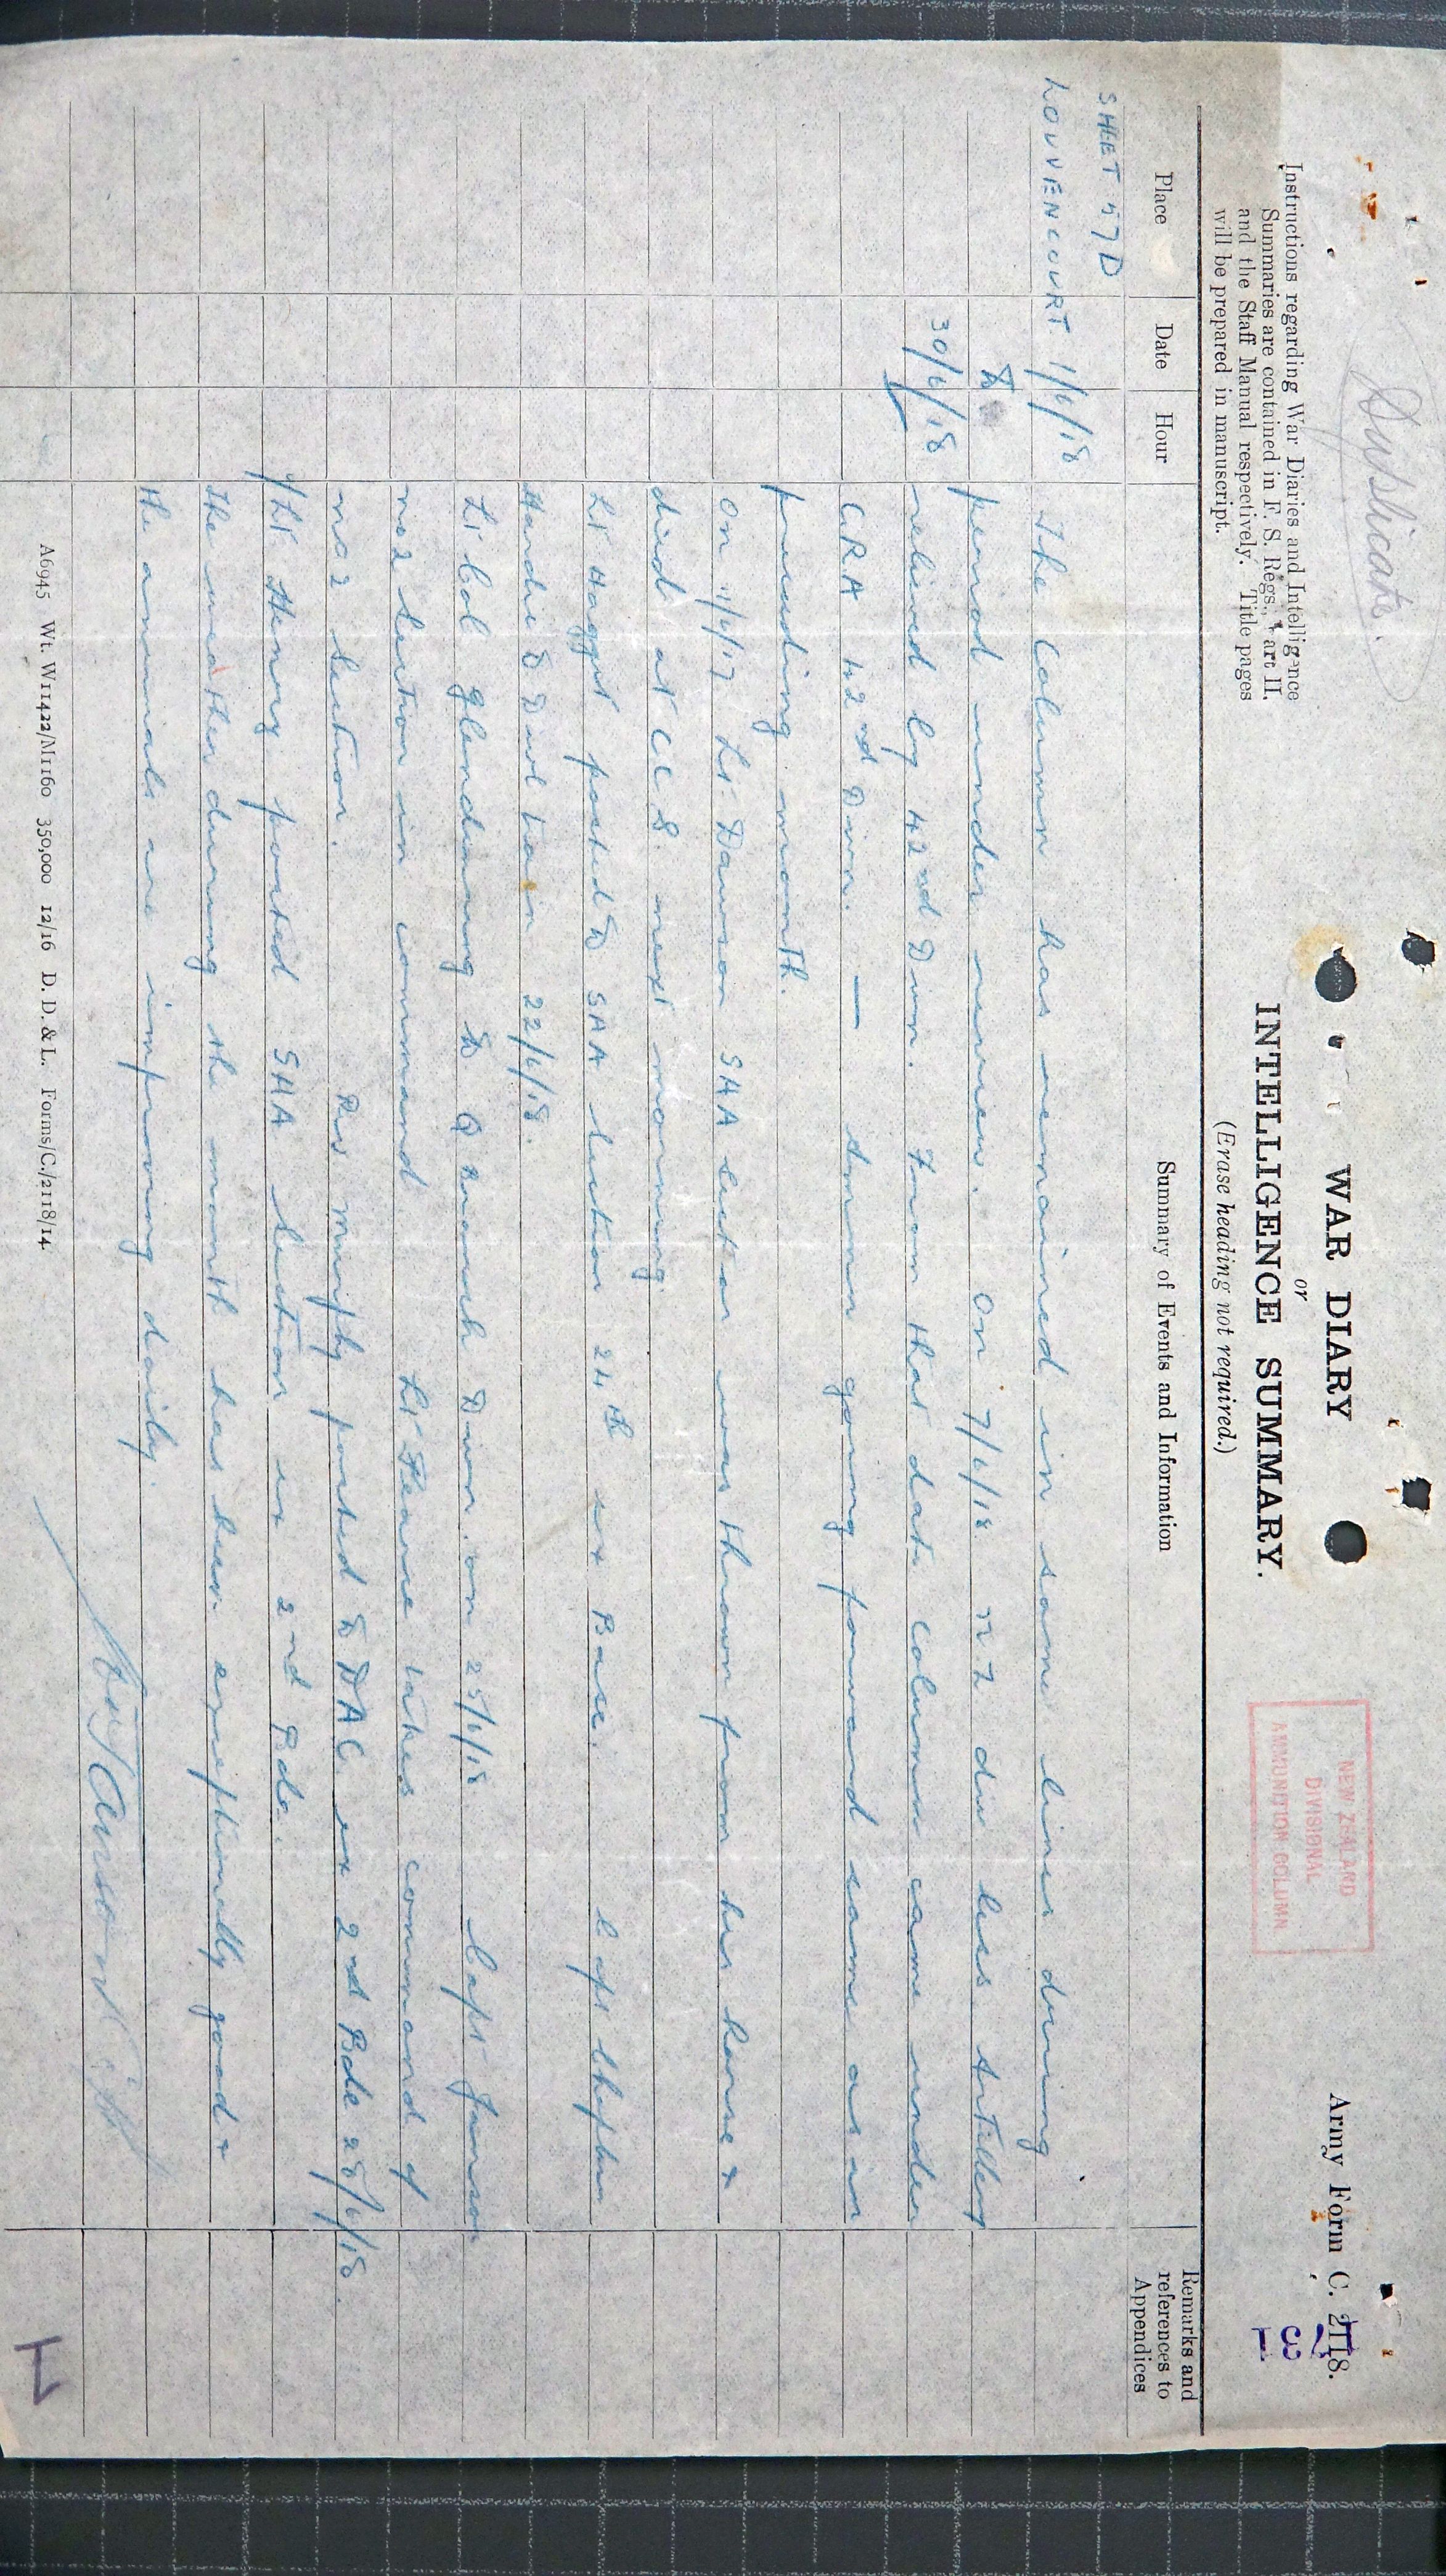 Duplicate.
Army Form C. 2118.
131
WAR DIARY
or
INTELLIGENCE SUMMARY.
(Erase heading not required.)
Instructions regarding War Diaries and Intelligence
Summaries are contained in F. S. Regs., Part II.
and the Staff Manual respectively. Title pages
will be prepared in manuscript.
NEW ZEALAND
DIVISIONAL
AMMUNITION COLUMN
Place
Date
Hour
Summary of Events and Information
Remarks and
references to
Appendices
SHEET 57D
LOUVENCOURT. 1/6/18
to
30/6/18
The Column has remained in same lines during
period under review. On 7/6/18 NZ div less Artillery
relieved by 42nd Divn. From that date column came under
CRA 42nd Divn. — Ammn going forward same as in
preceding month.
On 11/6/17 Lt Dawson SAA Section was thrown from his horse &
died at CCS next morning.
Lt Haggit posted to SAA Section 24th ex Base. Capt
Hardie to Divl train 22/6/18.
Lt Col Glendinning to Q branch Divn. on 25/6/18. Capt Jamson
no 2 Section in command Lt Pearce takes command of
no 2 Section. Rev Murphy posted to DAC ex 2nd Bde 28/6/18.
2/Lt. Henry posted SAA Section ex 2nd Bde.
The weather during the month has been exceptionally good &
the animals are improving daily.
Capt
A6945 Wt. W11422/M1160 350,000 12/16 D. D. & L. Forms/C./2118/14.